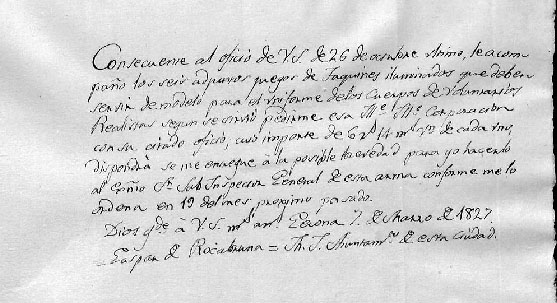 Consecuente al oficio de V.S. de 26 de octubre último, le acom
paño los seis adjuntos juegos de Faquines iluminados que deben
servir de modelo para el uniforme de los Cuerpos de Voluntarios
Realistas segun se sirvió pedirme esa Ille. Me. Corporacion
con su citado oficio, cuyo importe de 6 rs. 14 ms. vn. de cada uno,
dispondrá se me entregue á la posible brevedad para yo hacerlo
al Exmo Sr. Sub Inspector General de esta arma conforme me lo
ordena en 19 del mes proximo pasado.
Dios gde. à V.S. ms. ans. Gerona 7 de Marzo de 1827.
= Gaspar de Rocabruna = M. I. Ayuntamto. de esta Ciudad.